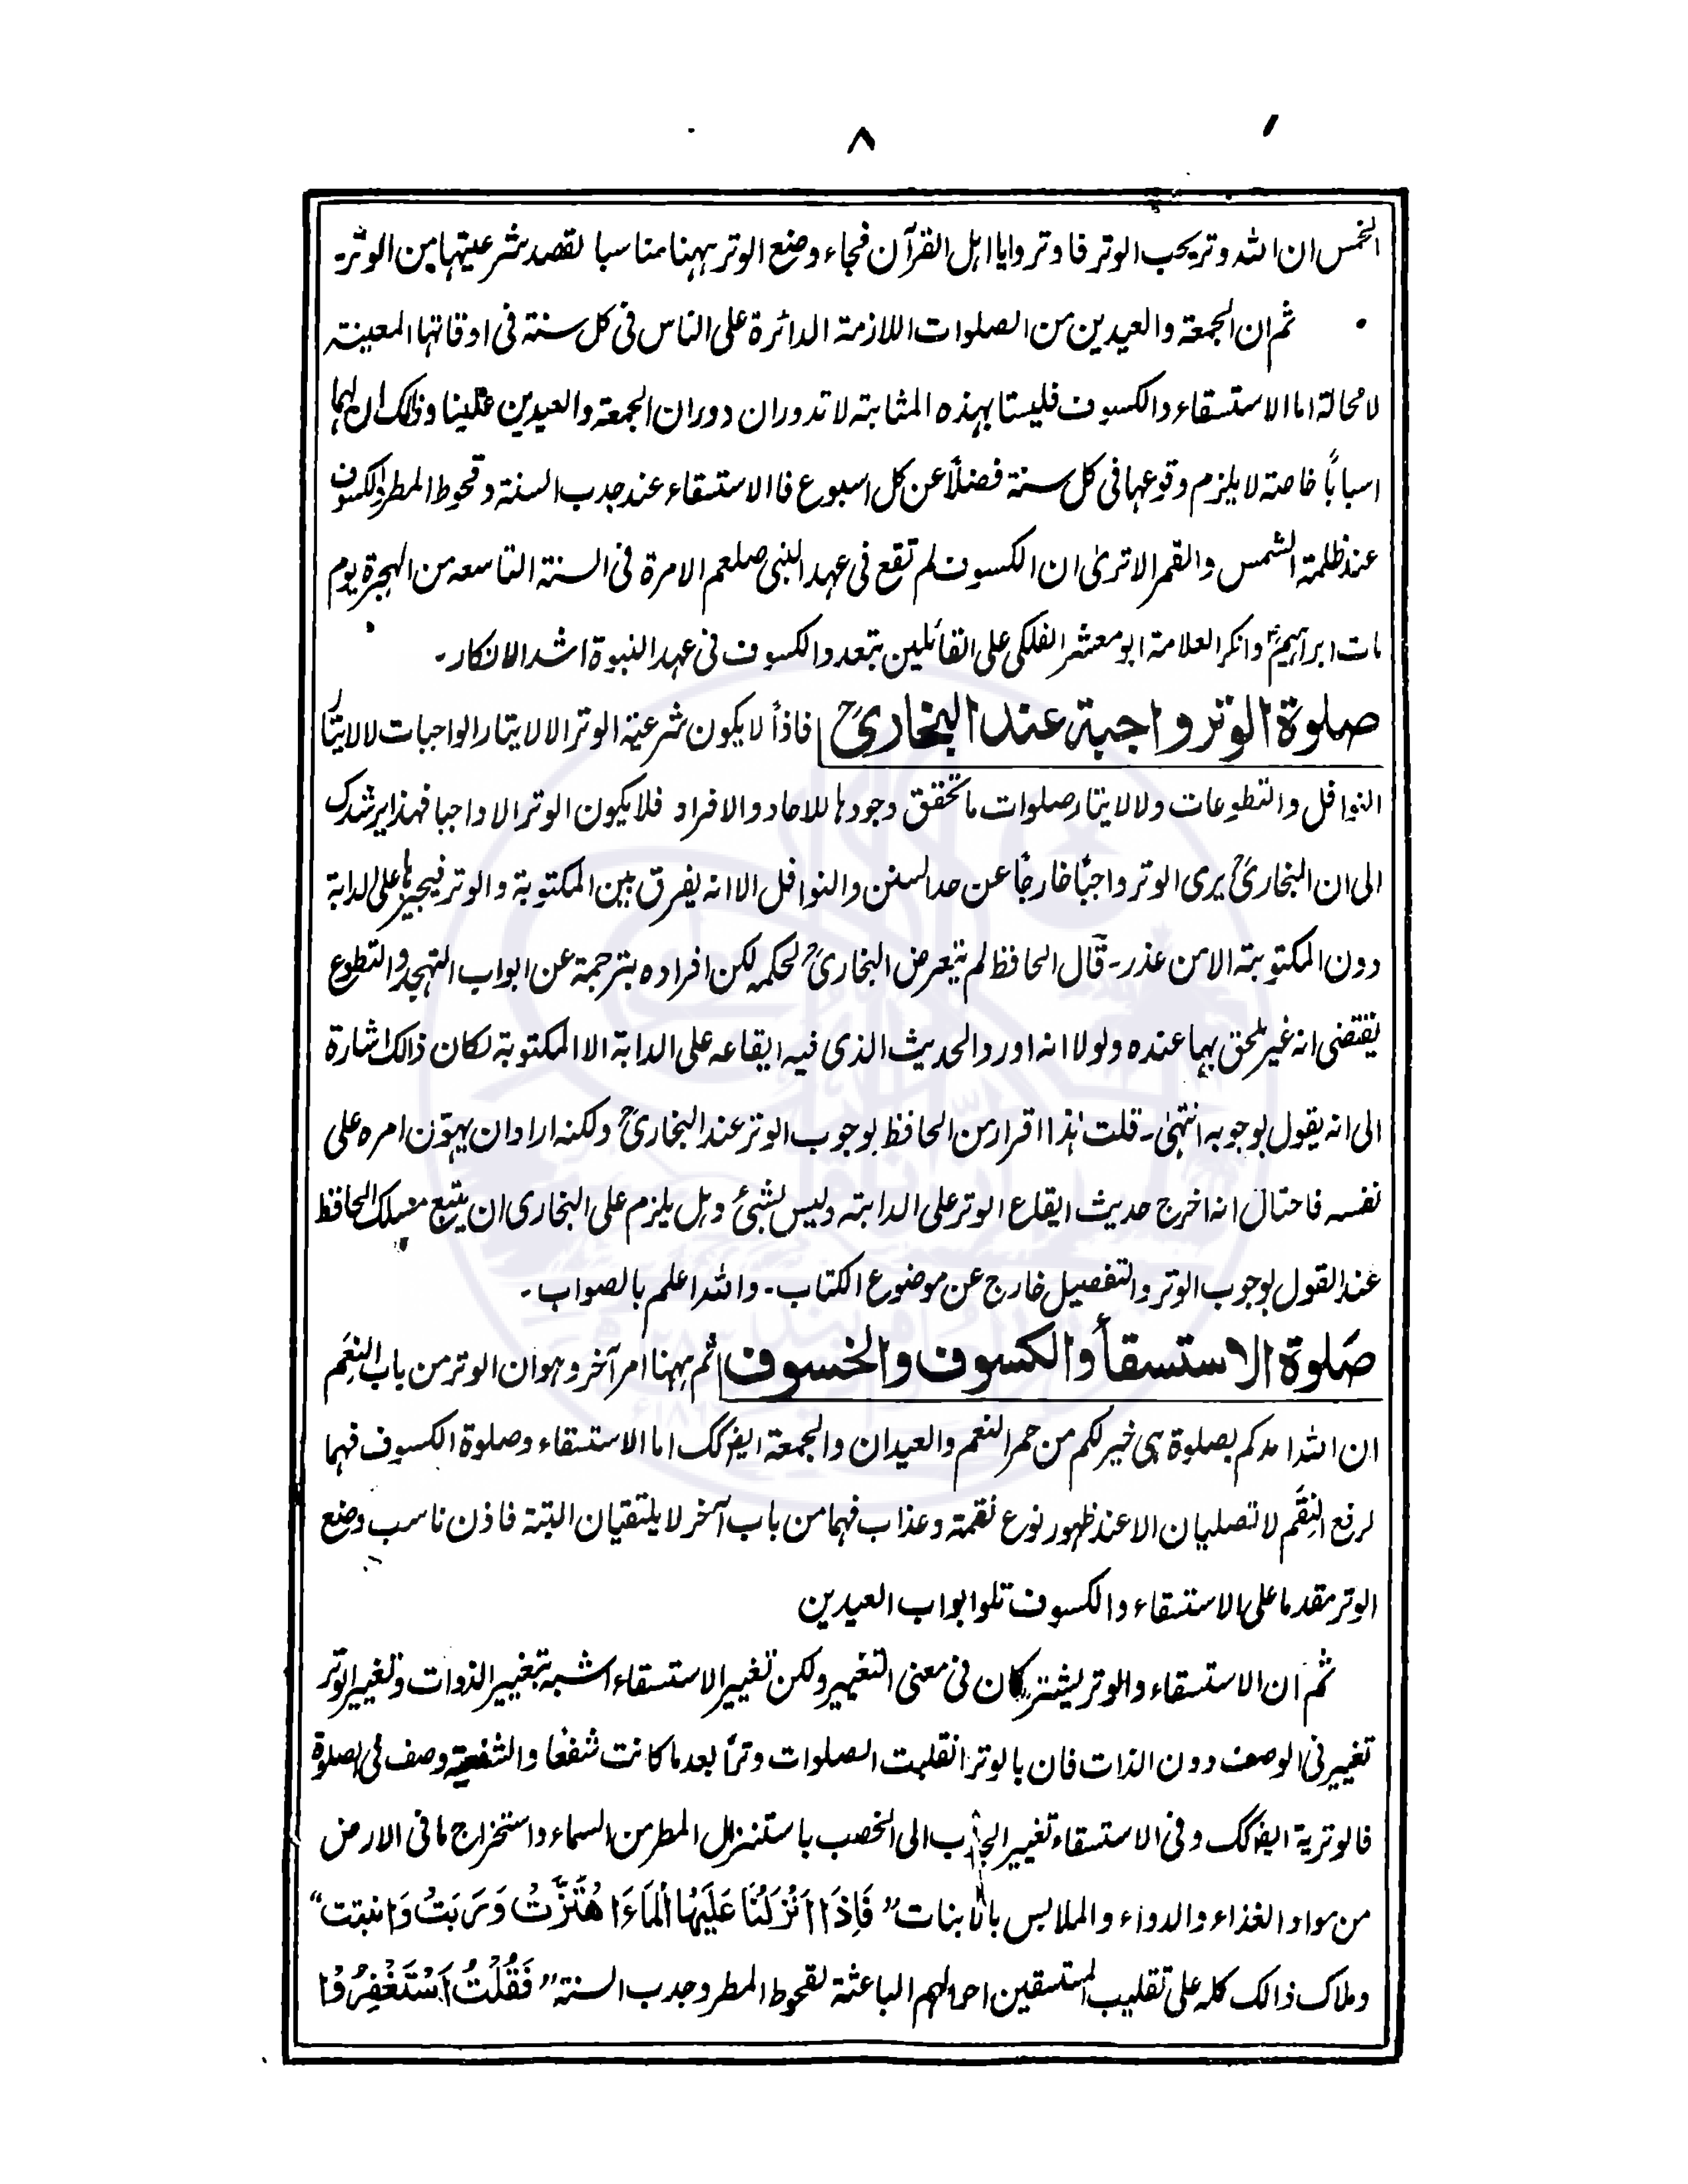 ٨
الخمس ان اللہ وتر یحب الوتر فاوتروا یا اہل القرآن فجاء وضع الوتر ہہنا مناسبا لقصد شرعیتہا من الوتر۔
ثم ان الجمعۃ والعیدین من الصلوات اللازمۃ الدائرۃ علی الناس فی کل سنۃ فی اوقاتہا المعینۃ
لا محالۃ اما الاستسقاء والکسوف فلیستا بہذہ المثابۃ لا تدوران دوران الجمعۃ والعیدین علینا وذلک ان لہما
اسباباً خاصۃ لا یلزم وقوعہا فی کل سنۃ فضلاً عن کل اسبوع فالاستسقاء عند جدب السنۃ وقحوط المطر والکسوف
عند ظلمۃ الشمس والقمر الا تریٰ ان الکسوف لم تقع فی عہد النبی صلعم الا مرۃ فی السنۃ التاسعہ من الہجرۃ یوم
مات ابراہیمؑ وانکر العلامۃ ابو معشر الفلکی علی القائلین بتعدد الکسوف فی عہد النبوۃ اشد الانکار۔
صلوۃ الوتر واجبۃ عند البخاریؒ فاذاً لا یکون شرعیۃ الوتر الا لایتار الواجبات لا لایتار
النوافل والتطوعات ولا لایتار صلوات ما تحقق وجودہا للاحاد والافراد فلا یکون الوتر الا واجبا فہذا یرشدک
الی ان البخاریؒ یری الوتر واجبًا خارجًا عن حد السنن والنوافل الا انہ یفرق بین المکتوبۃ والوتر فیجیزہا علی الدابۃ
دون المکتوبۃ الا من عذر۔ قال الحافظ لم یتعرض البخاریؒ لحکمہ لکن افرادہ بترجمۃ عن ابواب التہجد والتطوع
یقتضی انہ غیر ملحق بہما عندہ ولولا انہ اورد الحدیث الذی فیہ ایقاعہ علی الدابۃ الا المکتوبۃ لکان ذالک اشارۃ
الی انہ یقول بوجوبہ انتہیٰ۔ قلت ہٰذا اقرار من الحافظ بوجوب الوتر عند البخاریؒ ولکنہ اراد ان یہوّن امرہ علی
نفسہ فاحتال انہ اخرج حدیث ایقاع الوتر علی الدابۃ ولیس بشیٔ وہل یلزم علی البخاری ان یتبع مسلک الحافظ
عند القول بوجوب الوتر والتفصیل خارج عن موضوع الکتاب۔ واللہ اعلم بالصواب۔
صَلوۃ الاستسقأ والکسوف والخسوف ثم ہہنا امر آخر وہو ان الوتر من باب النِعَم
ان اللہ امدکم بصلوۃ ہی خیر لکم من حمر النعم والعیدان والجمعۃ ایضً کک اما الاستسقاء وصلوۃ الکسوف فہما
لرفع النِقَم لا تصلیان الا عند ظہور نوع نقمۃ وعذاب فہما من باب آخر لا یلتقیان البتۃ فاذن ناسب وضع
الوتر مقدما علی الاستسقاء والکسوف تلو ابواب العیدین
ثم ان الاستسقاء والوتر یشترکان فی معنی التغییر ولکن تغییر الاستسقاء اشبہ بتغییر الذوات وتغییر الوتر
تغییر فی الوصف دون الذات فان بالوتر انقلبت الصلوات وترًا بعد ما کانت شفعًا والشفعیۃ وصف فی الصلوۃ
فالوتریۃ ایضً کک وفی الاستسقاء تغییر الجدب الی الخصب باستنزال المطر من السماء واستخراج ما فی الارض
من مواد الغذاء والدواء والملابس بالانبات” فَاِذَا اَنْزَلْنَا عَلَیْہَا الْمَاءَ اهْتَزَّتْ وَرَبَتْ وَانبتت“
وملاک ذالک کلہ علی تقلیب المستسقین احوالہم الباعثۃ لقحوط المطر وجدب السنۃ” فَقُلْتُ اسْتَغْفِرُوْا